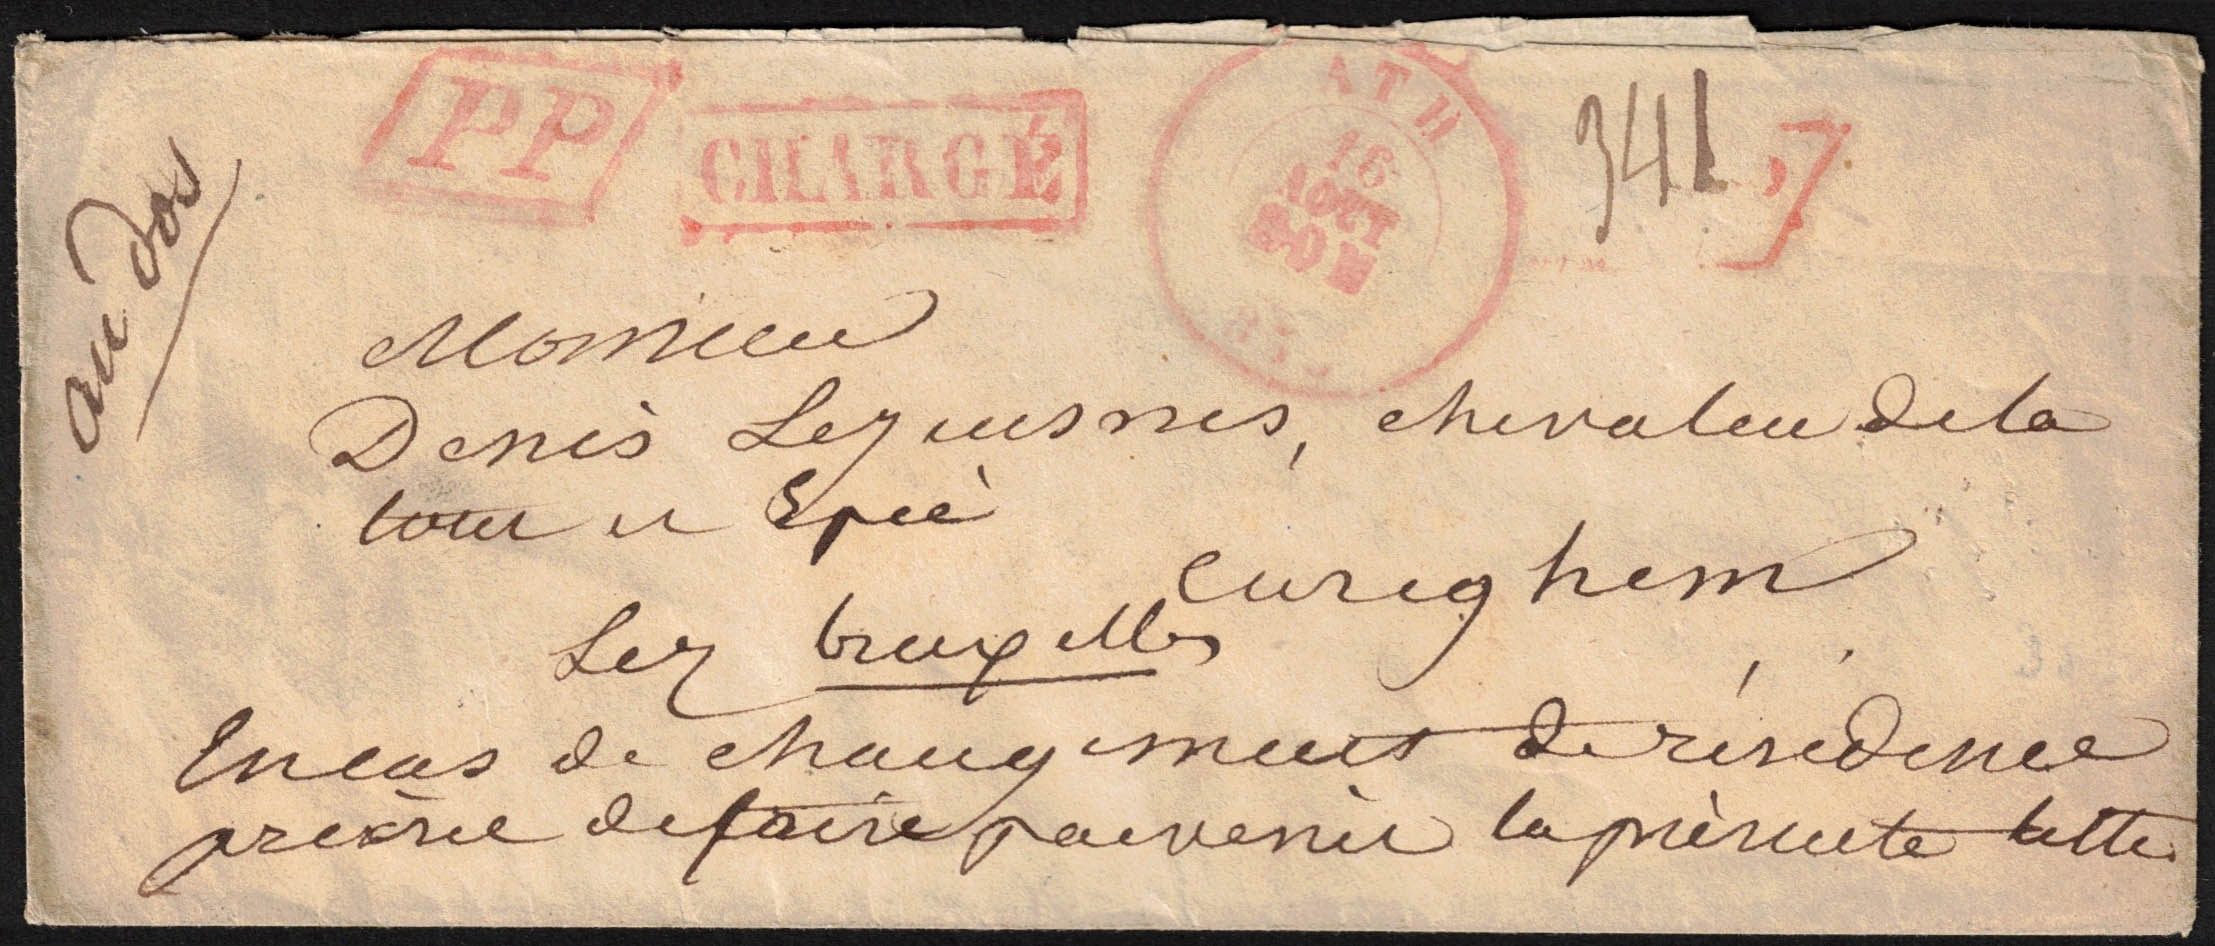 PP
CHARGÉ
ATH
16
AOUT
341
au dos
Monsieur
Denis Lezuesnes, chevalier de la
tour et Epée
Cureghem
Lez bruxelles
En cas de changement de résidence
prière de faire parvenir la présente lettre